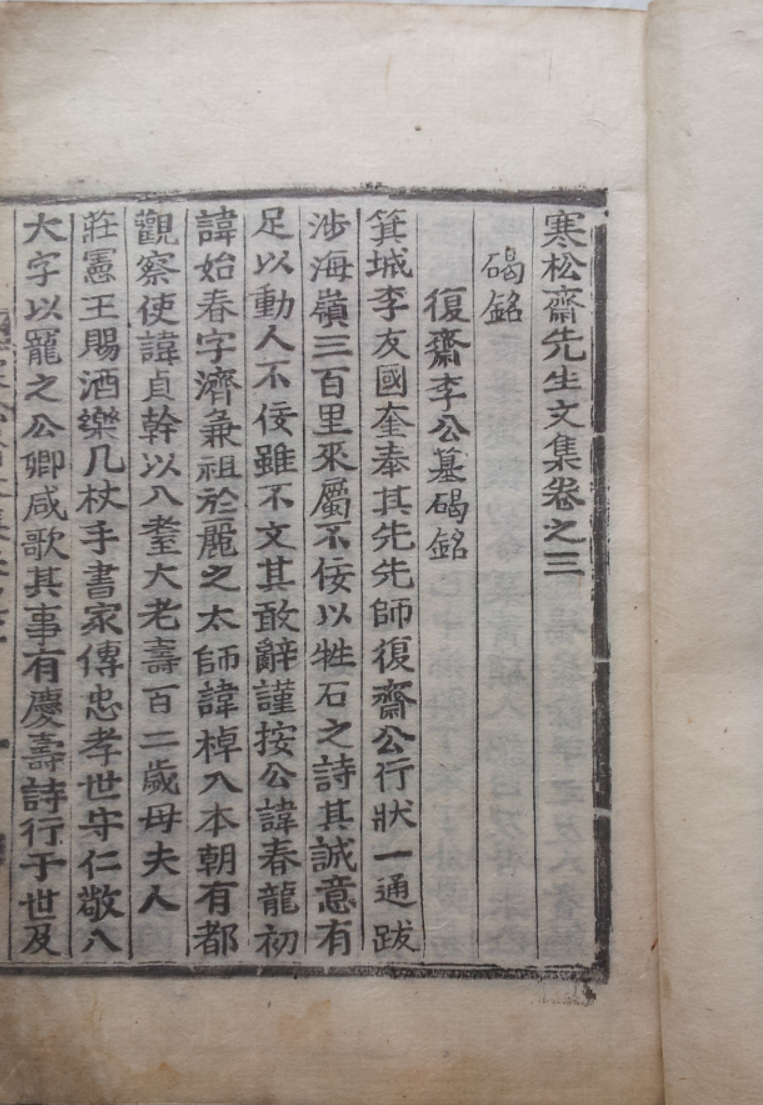 寒松齋先生文集卷之三
碣銘
復齋李公墓碣銘
箕城李友國奎奉其先先師復齋公行狀一通跋
涉海嶺三百里來屬不佞以牲石之詩其誠意有
足以動人不佞雖不文其敢辭謹按公諱春龍初
諱始春字濟兼祖於麗之太師諱棹入本朝有都
觀察使諱貞幹以八耊大老壽百二歲母夫人
莊憲王賜酒樂几杖手書家傳忠孝世守仁敬八
大字以寵之公卿咸歌其事有慶壽詩行于世及